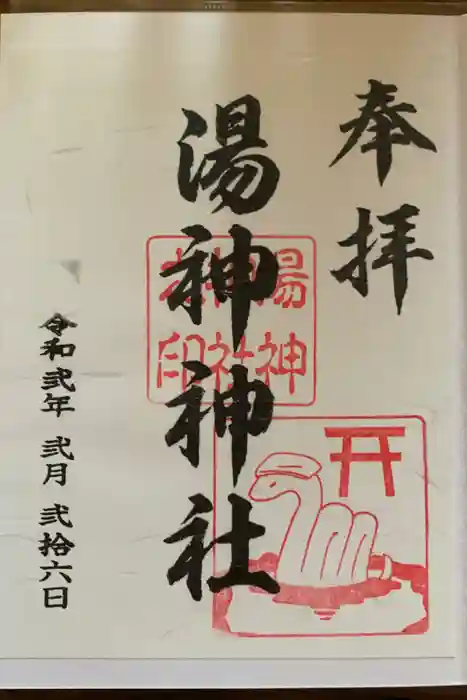 奉拝
湯神神社
湯神
神社
社印
令和弐年 弐月 弐拾六日